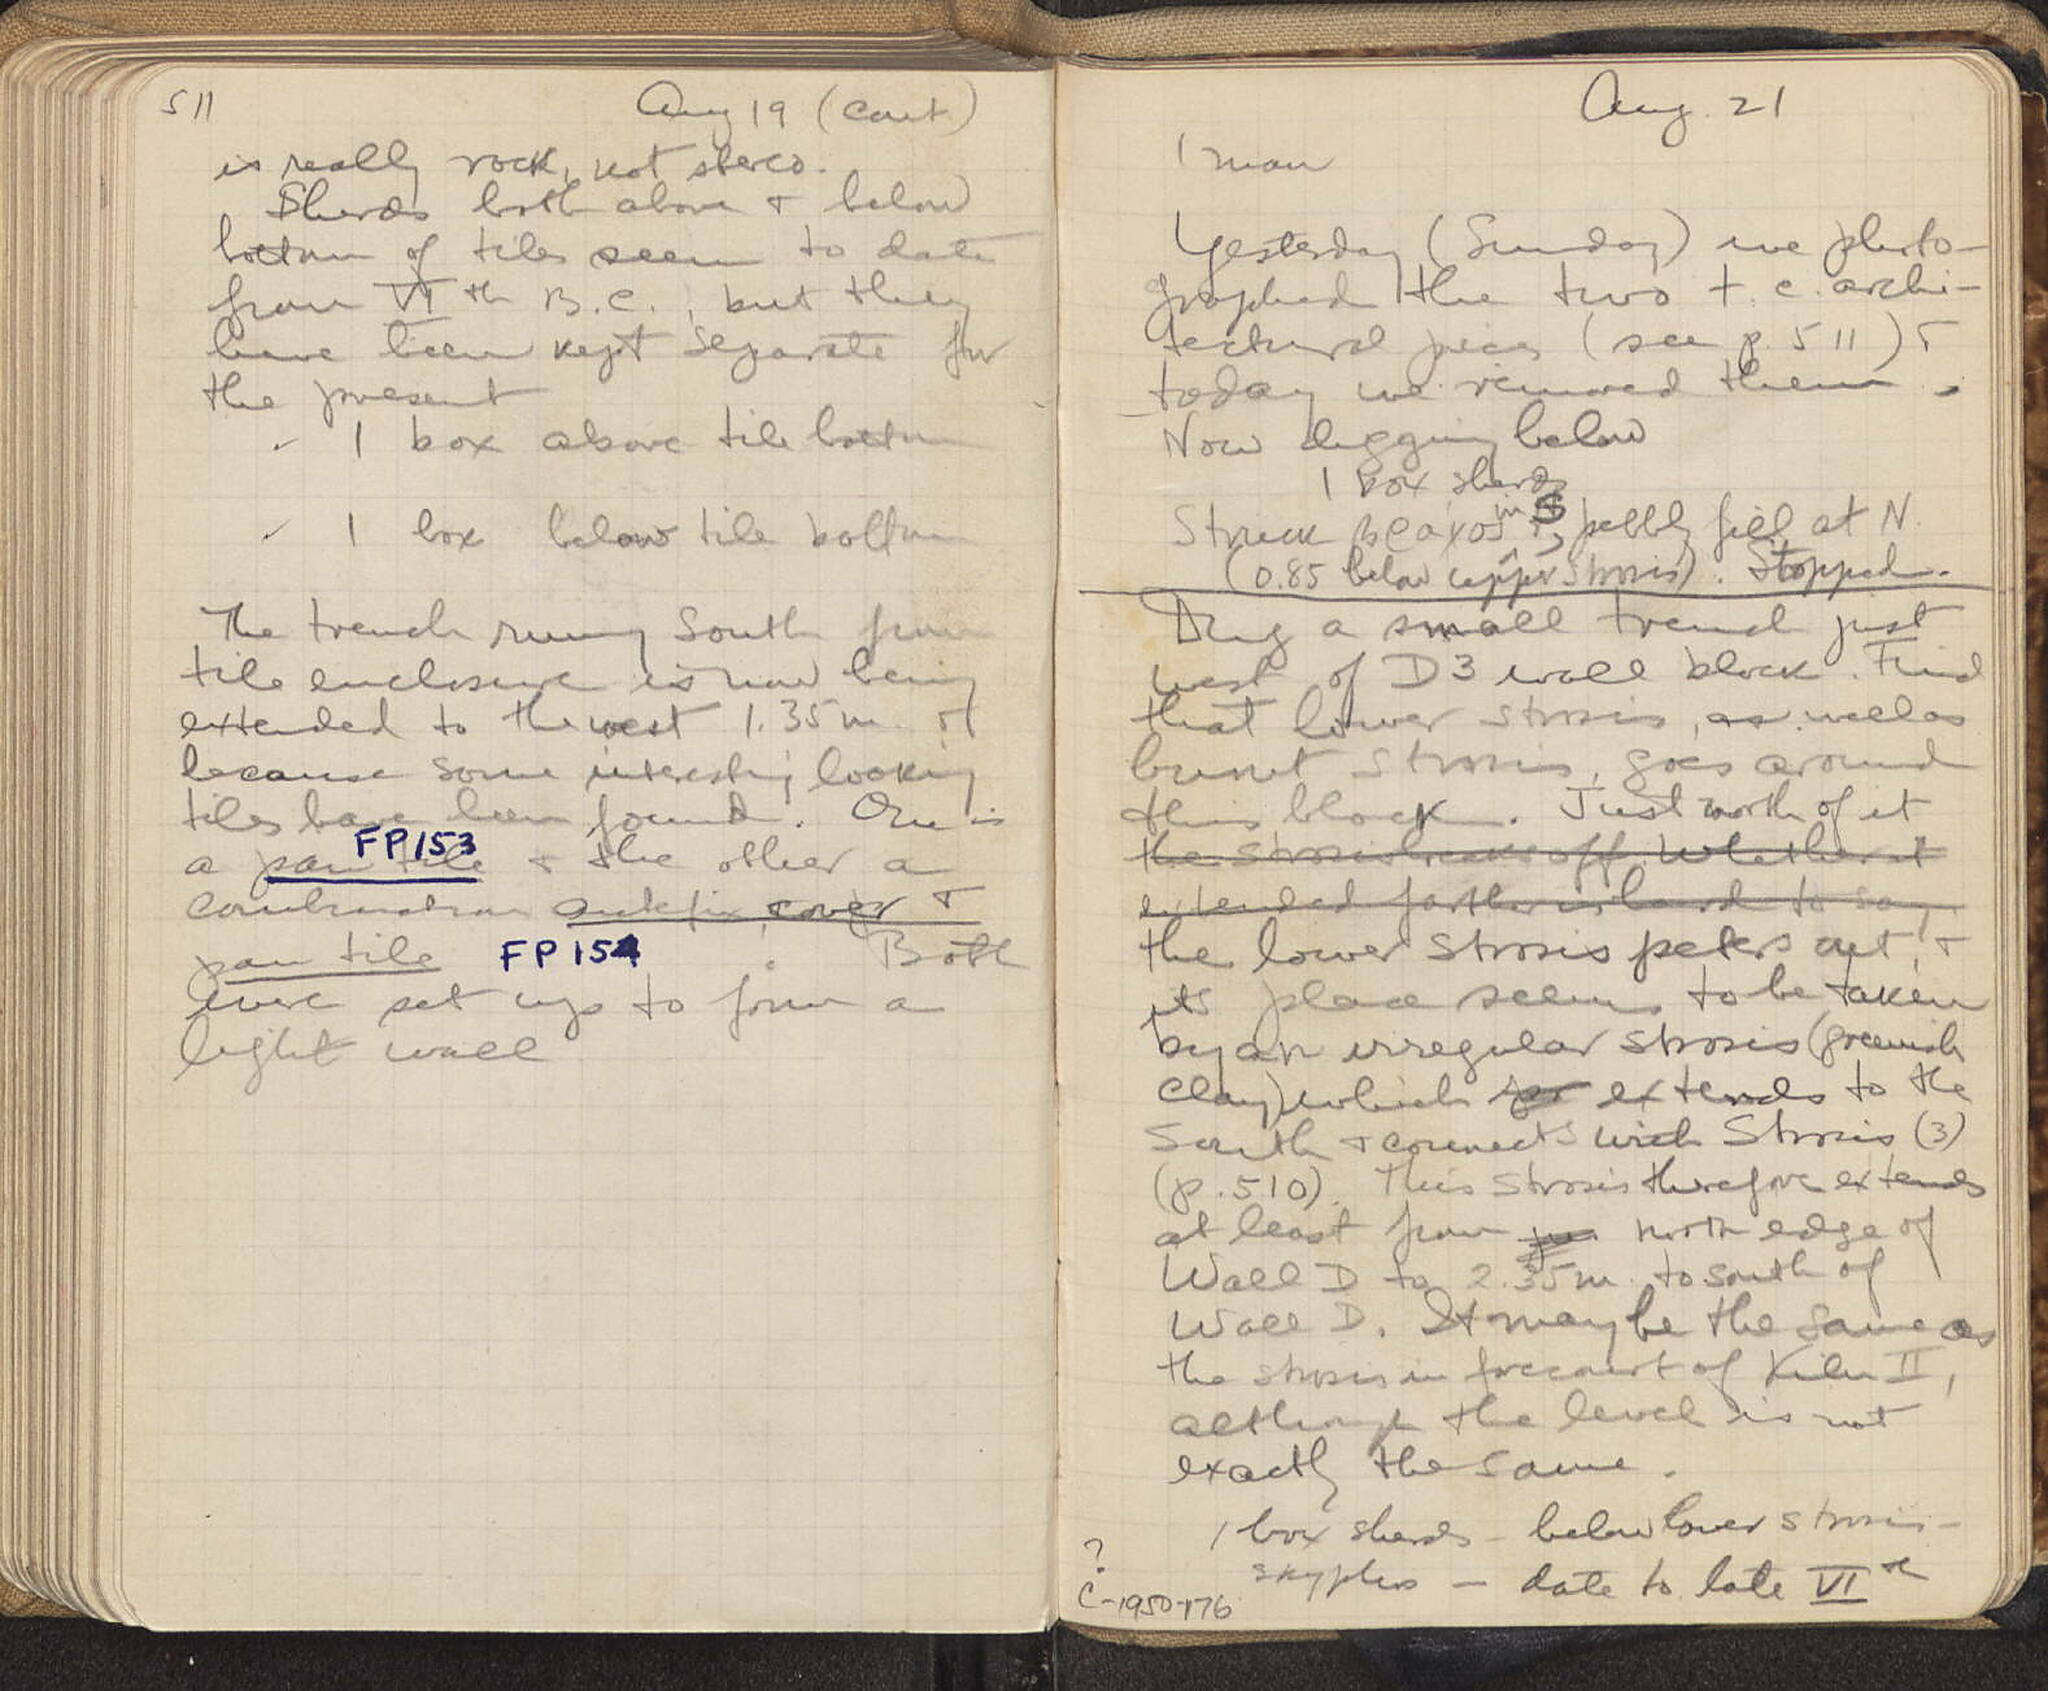 511
Aug 19 (cont.)
is really rock, not stereo.
Sherds both above + below
bottom of tiles seem to date
from VIth B.C., but they
have been kept separate for
the present
✓ 1 box above tile bottom
✓ 1 box below tile bottom
The trench running South from
tile enclosure is now being
extended to the west 1.35 m
because some interesting looking
tiles have been found. One is
FP153
a pan tile + the other a
combination antefix, cover +
pan tile FP 154. Both
were set up to form a
light wall
Aug. 21
1 man
Yesterday (Sunday) we photo-
graphed the two t.c. archi-
tectural pieces (see p. 511) +
today we removed them.
Now digging below
1 box sherds
Struck βραχος in S, pebbly fill at N.
(0.85 below upper Strosis). Stopped.
Dug a small trench just
west of D3 wall block. Find
that lower strosis, as well as
burnt strosis, goes around
this block. Just north of it
the strosis breaks off. Whether it
extended farther is hard to say.
the lower strosis peters out, +
its place seems to be taken
by an irregular strosis (greenish
clay) which extends to the
South + connects with Strosis (3)
(p. 510). This strosis therefore extends
at least from north edge of
Wall D to 2.35 m. to south of
Wall D. It may be the same as
the strosis in forecourt of Kiln II,
although the level is not
exactly the same.
1 box sherds - below lower strosis -
? skyphos - date to late VIth
C-1950-176